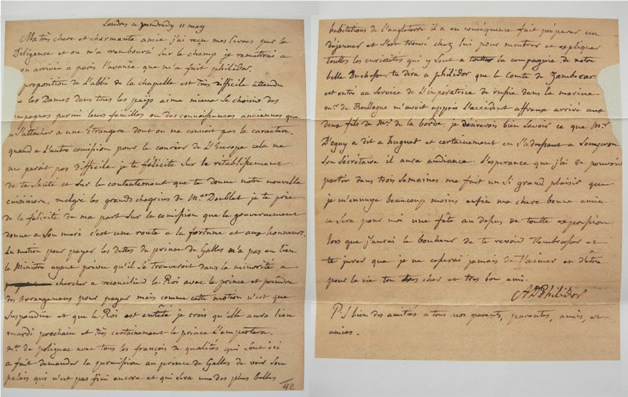 Londres ce vendredy 11 may
Ma tres chere et charmante amie j'ai reçu mes livres par la
Diligence et on m'a remboursé sur le champ je remettrai a
mon arrivée a paris l'avance que m'a fait philidor
proposition de L'abbé de la chapelle est tres difficile attendu
que les Dames dans tous les païs aime mieux choisir des
compagnes parmi leurs familles ou des connoissances anciennes que
de s'attacher a une Etrangere dont on ne connoit pas le caractere,
quand a l'autre comission pour le courier de L'Europe cela ne
me parait pas Difficile. je te félicite sur le rétablissement
de ta santé et sur le contentement que te donne notre nouvelle
cuisiniere, malgré les grands chagrins de Mme Doublet je te prie
de la féliciter de ma part sur la comission que le gouvernement
donne a son mari c'est une route a la fortune et aux honneurs.
La motion pour payer les dettes du prince de Galles n'a pas eu lieu
le Ministre ayant prévu qu'il se trouveroit dans la minorité a
cherché a reconcilier le Roi avec le prince et prendre
des arrangemens pour payer mais comme cette motion n'est que
suspendue et que le Roi est entêté je crois qu'elle aura lieu
mardi prochain et tres certainement le prince l'emportera.
Mr. de polignac avec tous les françois de qualités qui sont ici
a fait demander la permission au prince de Galles de voir son
palais qui n'est pas fini encore et qui sera une des plus belles
habitations de l'angleterre il a en conséquence fait préparer un
déjeuner et s'est trouvé chez lui pour montrer et expliquer
touttes les curiosités qui y sont a toutte la compagnie de notre
belle Duchesse. tu dira a philidor que le Comte de Zambecari
est entré au service de l'impératrice de russie dans la marine
Mr. de Boullogne m'avoit appris l'accident affreux arrivé aux
deux fils de Mr. de la borde je désirerois bien savoir ce que Mr.
D'agny a dit a huguet et certainement en s'adressant a
son Sécrétaire il aura audiance. l'esperance que j'ai de pouvoir
partir dans trois semaines me fait un si grand plaisir que
je m'ennuye beaucoup moins enfin ma chere bonne amie
ce sera pour moi une fête au dessus de toutte expression
lors que j'aurai le bonheur de te revoir t'embrasser et
te jurer que je ne cesserai jamais de t'aimer et d'être
pour la vie ton cher et tres bon ami.
Ad Philidor
PS. bien des amitiés a tous nos parents, parentes, amis, et
amies.